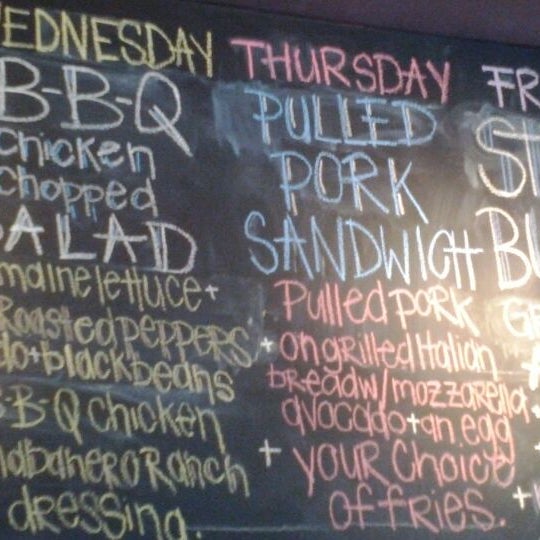 EDNESDAY
B-B-Q
chicken
chopped
ALAD
maine lettuce +
Roasted peppers
do + black beans
B-B-Q chicken
abanero Ranch
dressing.
THURSDAY
PULLED
PORK
SANDWICH
Pulled pork
on grilled Italian
bread w/ mozzarella
avocado + an egg
+ YOUR Choice
of fries.
FR
ST
BU